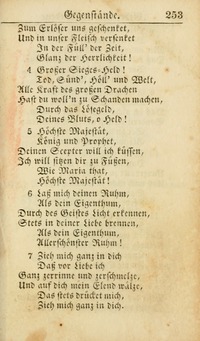 Gegenstände. 253
Zum Erlöser uns geschenket,
Und in unser Fleisch versenket
In der Füll' der Zeit,
Glanz der Herrlichkeit!
4 Großer Sieges-Held!
Tod, Sünd', Höll' und Welt,
Alle Kraft des großen Drachen
Hast du woll'n zu Schanden machen
Durch das Lösegeld,
Deines Bluts, o Held!
5 Höchste Majestät,
König und Prophet,
Deinen Scepter will ich küssen,
Ich will sitzen dir zu Füßen,
Wie Maria that,
Höchste Majestät!
6 Laß mich deinen Ruhm,
Als dein Eigenthum,
Durch des Geistes Licht erkennen,
Stets in deiner Liebe brennen,
Als dein Eigenthum,
Allerschönster Ruhm!
7 Zieh mich ganz in dich
Daß vor Liebe ich
Ganz zerrinne und zerschmelze,
Und auf dich mein Elend wälze,
Das stets drücket mich,
Zieh mich ganz in dich.